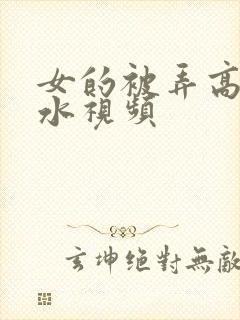 女的被弄高
水視頻
玄坤絕對無敵